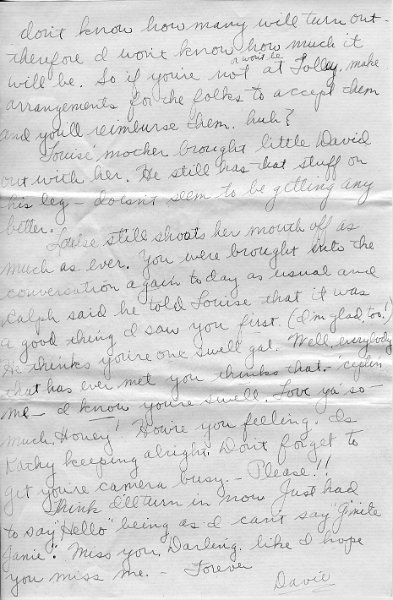 don't know how many will turn out -
therefore I won't know how much it
will be. So if you're not at Tolley, make
won't be
arrangements for the folks to accept them
and you'll reimburse them. huh?
Louise' mother brought little David
out with her. He still has that stuff on
his leg - doesn't seem to be getting any
better.
Louise still shoots her mouth off as
much as ever. You were brought into the
conversation again today as usual and
Ralph said he told Louise that it was
a good thing I saw you first. (I'm glad too!)
He thinks you're one swell gal. Well everybody
that has ever met you thinks that. 'ceptin
me - I know you're swell. Love ya' so-
much, Honey! How're you feeling. Is
Kathy keeping alright. Don't forget to
get you're camera busy. - Please!!
Think I'll turn in now. Just had
to say "Hello" being as I can't say "G'nite
Janie". Miss you, Darling. like I hope
you miss me. - Forever
Davie